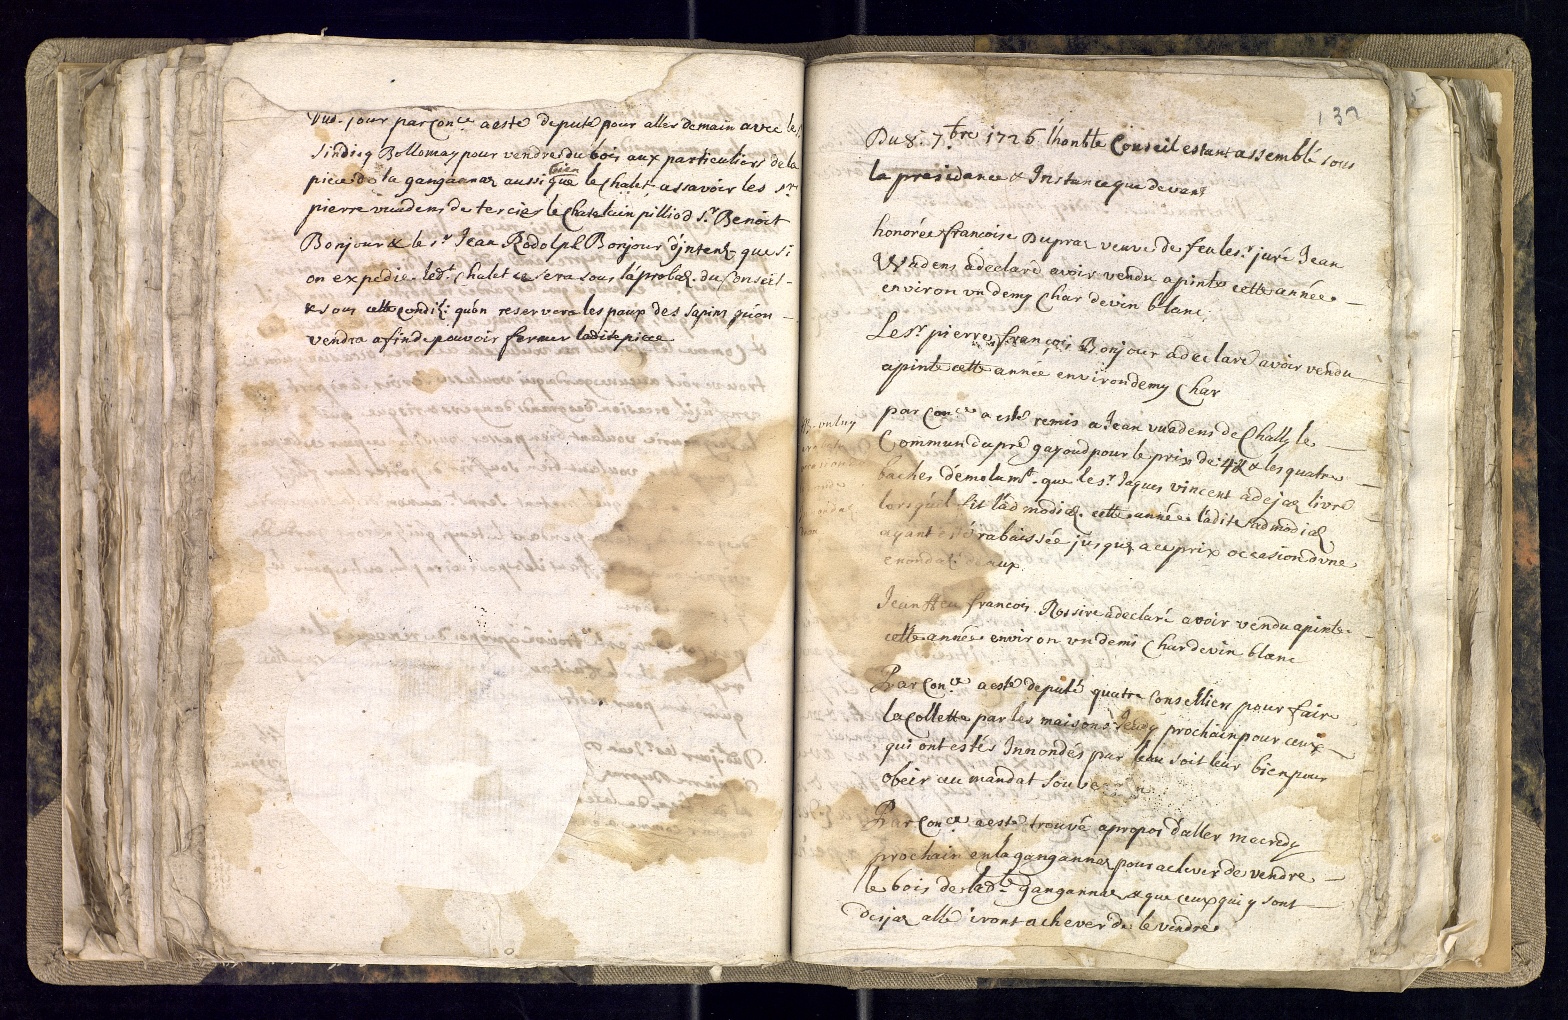 Dud. jour par Con.ce a esté deputé pour aller demain avec le s.r
Sindicq Bollomay pour vendre du bois aux particuliers de la
piece de la gangannaz aussi bien que le Chalet, assavoir les s.rs
pierre vuadens de tercier le Chatelain pilliod S.r Benoit
Bonjour & le s.r Jean Rodolph Bonjour que si
on expedie led.t Chalet ce sera sous l'aprobaõn du Conseil
& sous cette condi.on qu'on reservera les paux des sapins qu'on
vendra afin de pouvoir fermer ladite piece
132
Du 8.e 7.bre 1726 l'honble Conseil estant assemblé sous
la presidance & Instance que devant
honorée françoise Dupraz veuve de feu le s.r juré Jean
Wadens a declaré avoir vendu a pinte cette année
environ vn demy Char de vin blanc
Le s.r pierre françois Bonjour a declaré avoir vendu
a pinte cette année environ demy Char
par Con.ce a esté remis a Jean vuadens de Chally le
Commun du pre gayoud pour le prix de & les quatre
baches d'emolum.t que le s.r Jaques vincent a dejaz livré
lorsqu'el fit l'admodiaõn cette année ladite admodiaõn
ayant esté rabaissée jusques a ce prix occasion d'vne
Jean françois Rossire a declaré avoir vendu a pinte
cette année environ vn demi Char de vin blanc
Par Con.ce a esté deputé quatre Conselliers pour faire
la Collette par les maisons Jeudy prochain pour ceux
qui ont estés Innondés par l'eau soit leur bien pour
obeir au mandat Souverain
Par Con.ce a esté trouvé a propos d'aller mecredy
prochain en la gangannaz pour achever de vendre
le bois de lad.te gangannaz & que ceux qui y sont
desjaz allé iront achever de le vendre